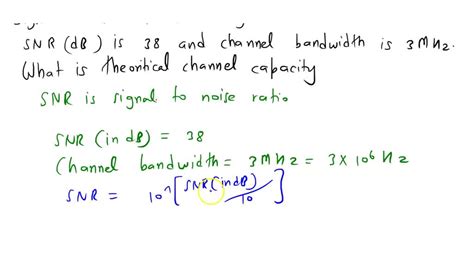 SNR (dB) is 38 and channel bandwidth is 3MHz.
What is theoritical channel capacity
SNR is signal to noise ratio
SNR (in dB) = 38
Channel bandwidth = 3 MHz = 3 × 10⁶ Hz
SNR = 10^[SNR(in dB)/10]